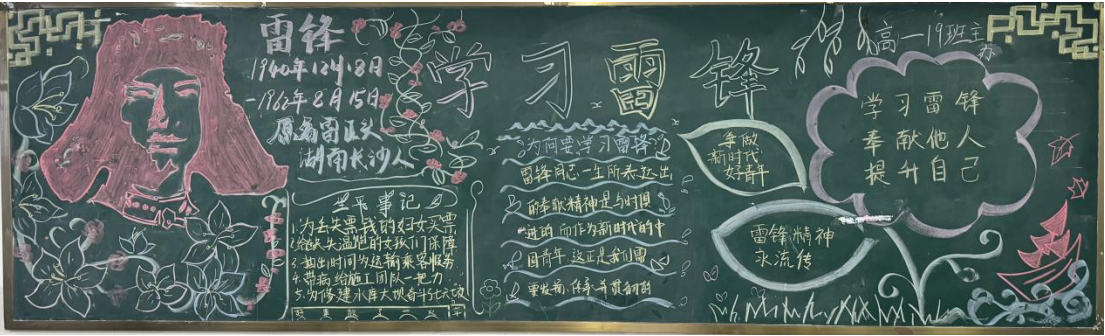 雷锋
1940年12月18日
-1962年8月15日
原名雷正兴
湖南长沙人
生平事记
1.为丢失票我的妇女买票
2.给失温饱的女孩们保障
3.抽出时间为运输乘客服务
4.带病给施工团队一把力
5.为修建水库大坝奋斗
学习雷锋
为何要学习雷锋
雷锋同志一生所表达出
的奉献精神是与时俱
进的而作为新时代的中
国青年,这正是我们需
要发扬,传承
争做
新时代
好青年
雷锋精神
永流传
高一19班主
办
学习雷锋
奉献他人
提升自己